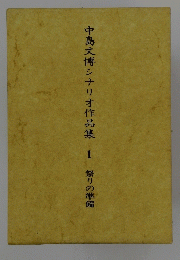 中島丈博シナリオ作品集 1 祭りの準備